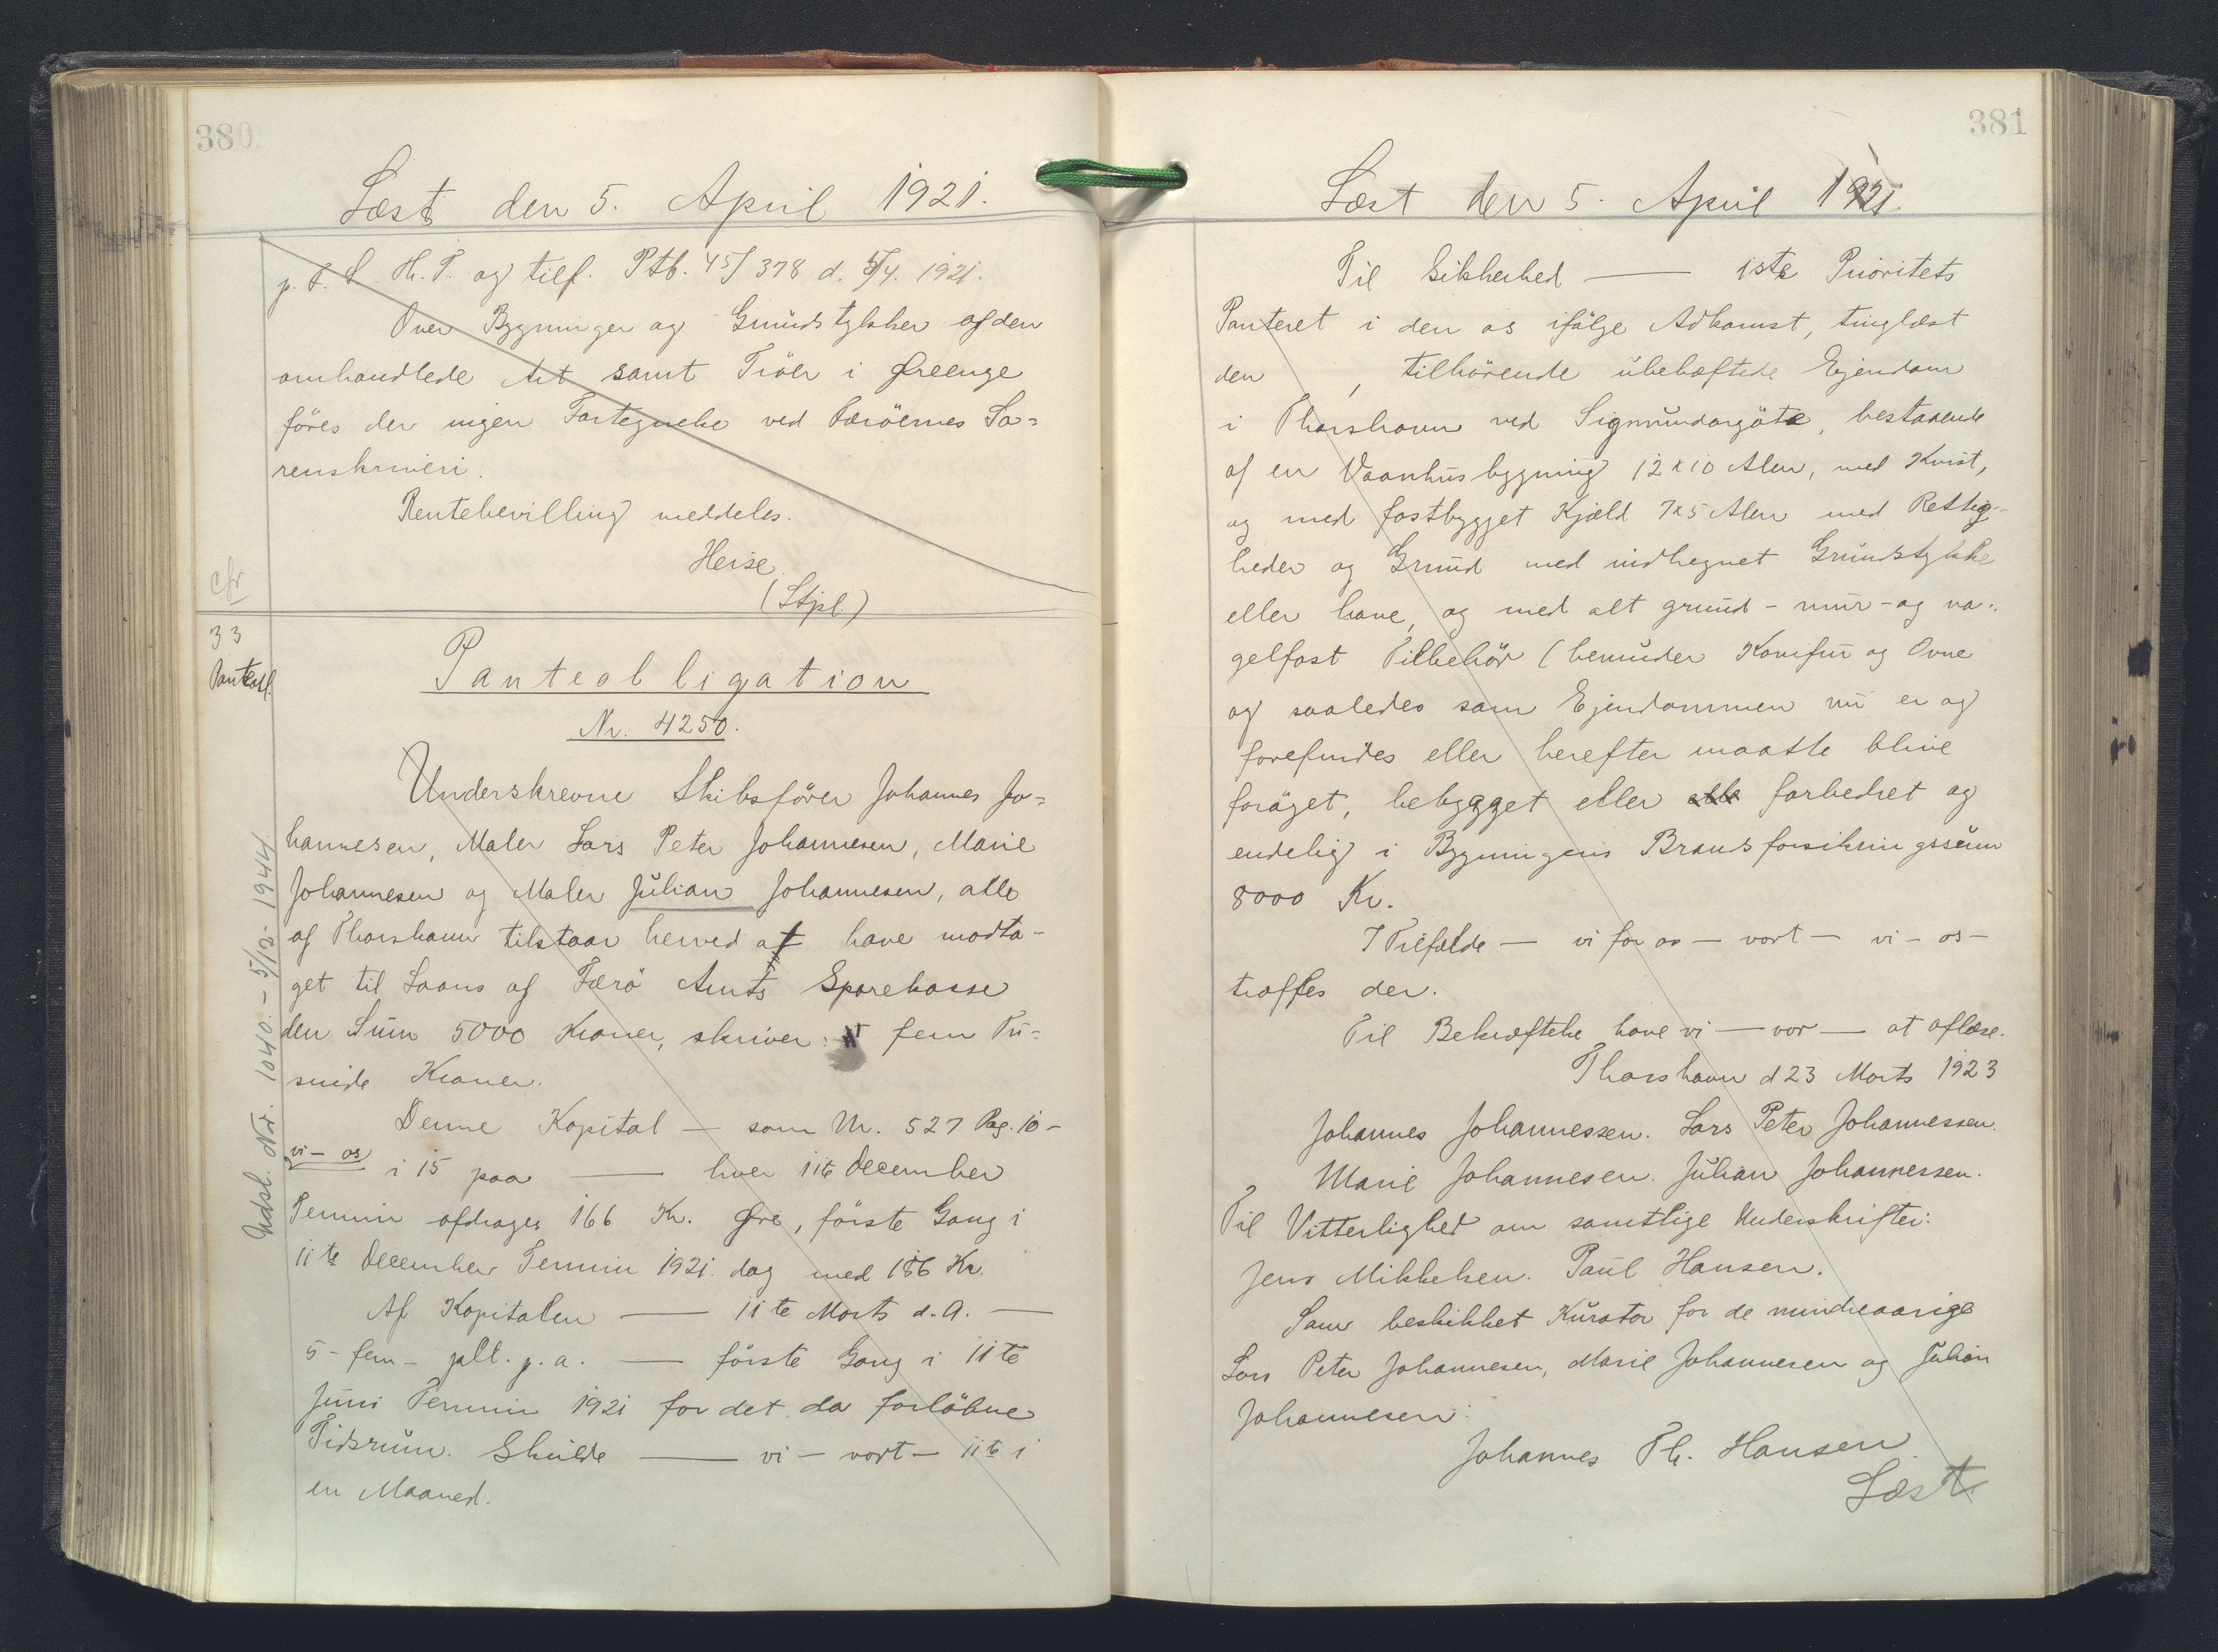 380
Læst den 5. April 1921.
p. T. L. H. T. og tilf. Ptb. 45/378 d. 5/4. 1921.
Over Bygninger og Grundstykker af den
omhandlede Art samt Tröer i Øreenge
föres der ingen Fortegnelse ved Færöernes So=
renskriveri.
Rentebevilling meddeles.
Heise.
(Stpl.)
cfr
33
Panteobl.
Panteobligation
Nr. 4250.
Underskrevne Skibsförer Johannes Jo=
hannesen, Maler Lars Peter Johannesen, Marie
Johannesen og Maler Julian Johannesen, alle
af Thorshavn tilstaar herved at have modta-
get til Laans af Færö Amts Sparekasse
den Sum 5000 Kroner, skriver: fem Tu=
sinde Kroner.
Denne Kapital — som Nr. 527 Pag. 10 -
vi - os i 15 paa — hver 11te December
Termin afdrages 166 Kr. Øre, förste Gang i
11te December Termin 1921. dog med 186 Kr.
Af Kapitalen — 11te Marts d. A. —
5 - fem - pCt. p. a. — förste Gang i 11te
Juni Termin 1921 for det da forlöbne
Tidsrum. Skulde — vi - vort - 11te i
en Maaned.
Udsl. Nr. 1040. - 5/12 - 1944.
381
Læst den 5. April 1921.
Til Sikkerhed — 1ste Prioritets
Panteret i den os ifölge Adkomst, tinglæst
den , tilhörende ubehæftede Ejendom
i Thorshavn ved Sigmundargöta, bestaaende
af en Vaanhusbygning 12 x 10 Alen, med Kvist,
og med fastbygget Kjæld 7x5 Alen med Rettig-
heder og Grund med indhegnet Grundstykke
eller have, og med alt grund - mur - og na-
gelfast Tilbehör (herunder Komfur og Ovne
og saaledes som Ejendommen nu er og
forefindes eller herefter maatte blive
foröget, bebygget eller forbedret og
endelig i Bygningens Brandforsikringssum
8000 Kr.
I Tilfælde — vi for os — vort — vi - os -
træffes der.
Til Bekræftelse have vi — vor — at aflæse.
Thorshavn d 23 Marts 1923
Johannes Johannessen. Lars Peter Johannessen.
Marie Johannesen. Julian Johannessen.
Til Vitterlighed om samtlige Underskrifter:
Jens Mikkelsen. Paul Hansen.
Som beskikket Kurator for de mindreaarige
Lars Peter Johannesen, Marie Johannesen og Julian
Johannesen:
Johannes Th. Hansen
Læst